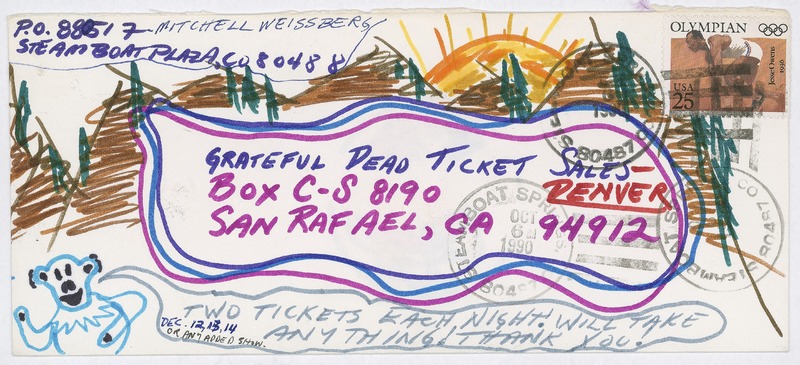 MITCHELL WEISSBERG
P.O. 88517
STEAMBOAT PLAZA, CO 80488
OLYMPIAN
Jesse Owens
1936
USA
25
GRATEFUL DEAD TICKET SALES-
DENVER
BOX C-S 8190
SAN RAFAEL, CA 94912
STEAMBOAT SPR
OCT
6
1990
80487
80487
STEAMBOAT S
CO 80487
TWO TICKETS EACH NIGHT! WILL TAKE
ANYTHING! THANK YOU!
DEC. 12, 13, 14
OR ANY ADDED SHOW.